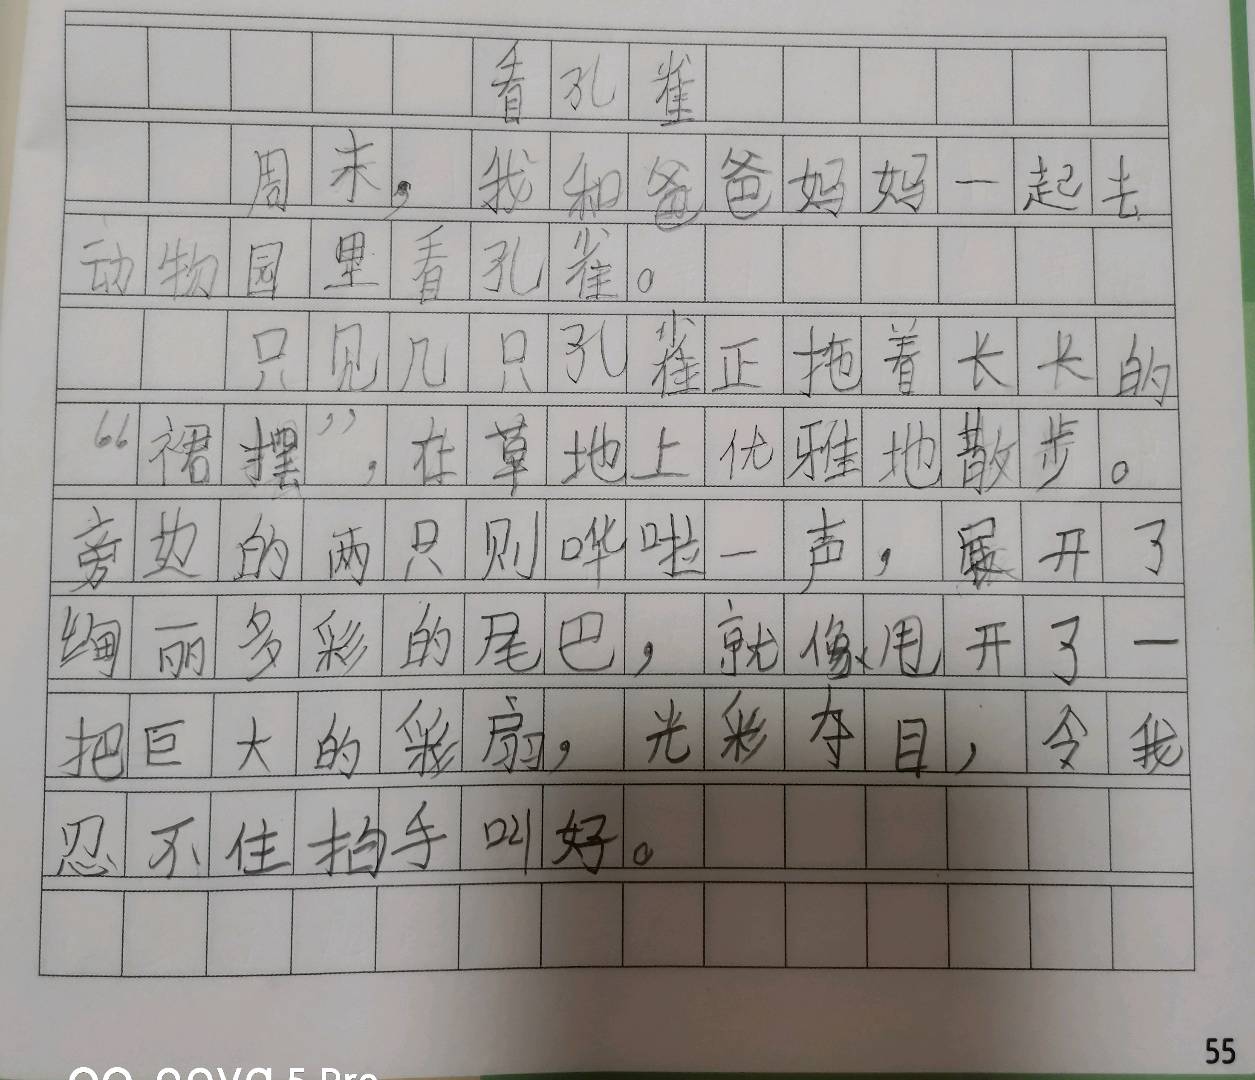 看孔雀
周末，我和爸爸妈妈一起去
动物园里看孔雀。
只见几只孔雀正拖着长长的
“裙摆”，在草地上优雅地散步。
旁边的两只则哗啦一声，展开了
绚丽多彩的尾巴，就像甩开了一
把巨大的彩扇，光彩夺目，令我
忍不住拍手叫好。
55